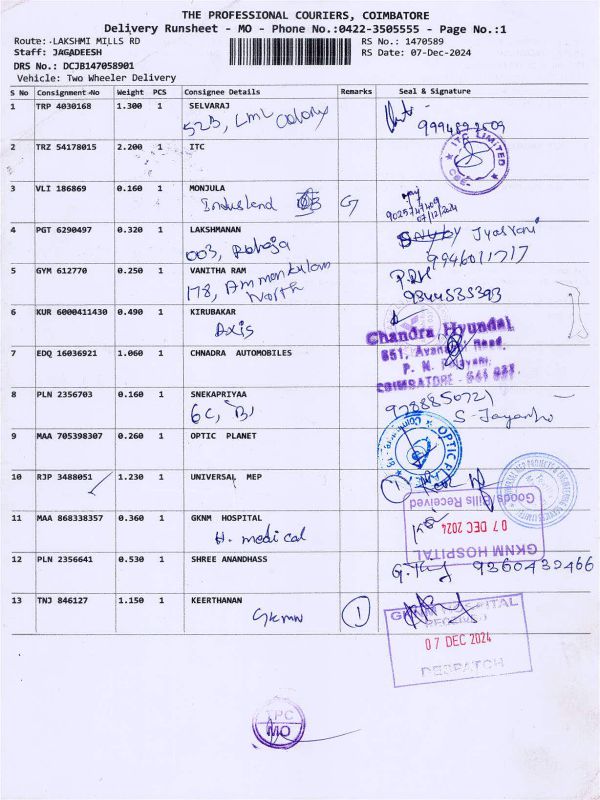 THE PROFESSIONAL COURIERS, COIMBATORE
Delivery Runsheet - MO - Phone No.:0422-3505555 - Page No.:1
Route: LAKSHMI MILLS RD
RS No.: 1470589
Staff: JAGADEESH
RS Date: 07-Dec-2024
DRS No.: DCJB147058901
Vehicle: Two Wheeler Delivery
S No Consignment No Weight PCS Consignee Details Remarks Seal & Signature
1 TRP 4030168 1.300 1 SELVARAJ
52B, LML Colony
2 TRZ 54178015 2.200 1 ITC
ITC LIMITED
CBE-
3 VLI 186869 0.160 1 MONJULA
Indusland
9025747409
07/12/2024
4 PGT 6290497 0.320 1 LAKSHMANAN
003, Raheja
9946011717
5 GYM 612770 0.250 1 VANITHA RAM
178, Ammankulam
North
9344535393
6 KUR 6000411430 0.490 1 KIRUBAKAR
Axis
Chandra Hyundai
7 EDQ 16036921 1.060 1 CHNADRA AUTOMOBILES
COIMBATORE - 641 037
8 PLN 2356703 0.160 1 SNEKAPRIYAA
6C, B1
9788850721
9 MAA 705398307 0.260 1 OPTIC PLANET
OPTIC PLANET
10 RJP 3488051 1.230 1 UNIVERSAL MEP
1
11 MAA 868338357 0.360 1 GKNM HOSPITAL
H. medical
GKNM HOSPITAL
07 DEC 2024
Goods/Bills Received
12 PLN 2356641 0.530 1 SHREE ANANDHASS
9360432466
13 TNJ 846127 1.150 1 KEERTHANAN
Gkmn
1
GKNM HOSPITAL
RECEIVED
07 DEC 2024
DESPATCH
TPC
MO